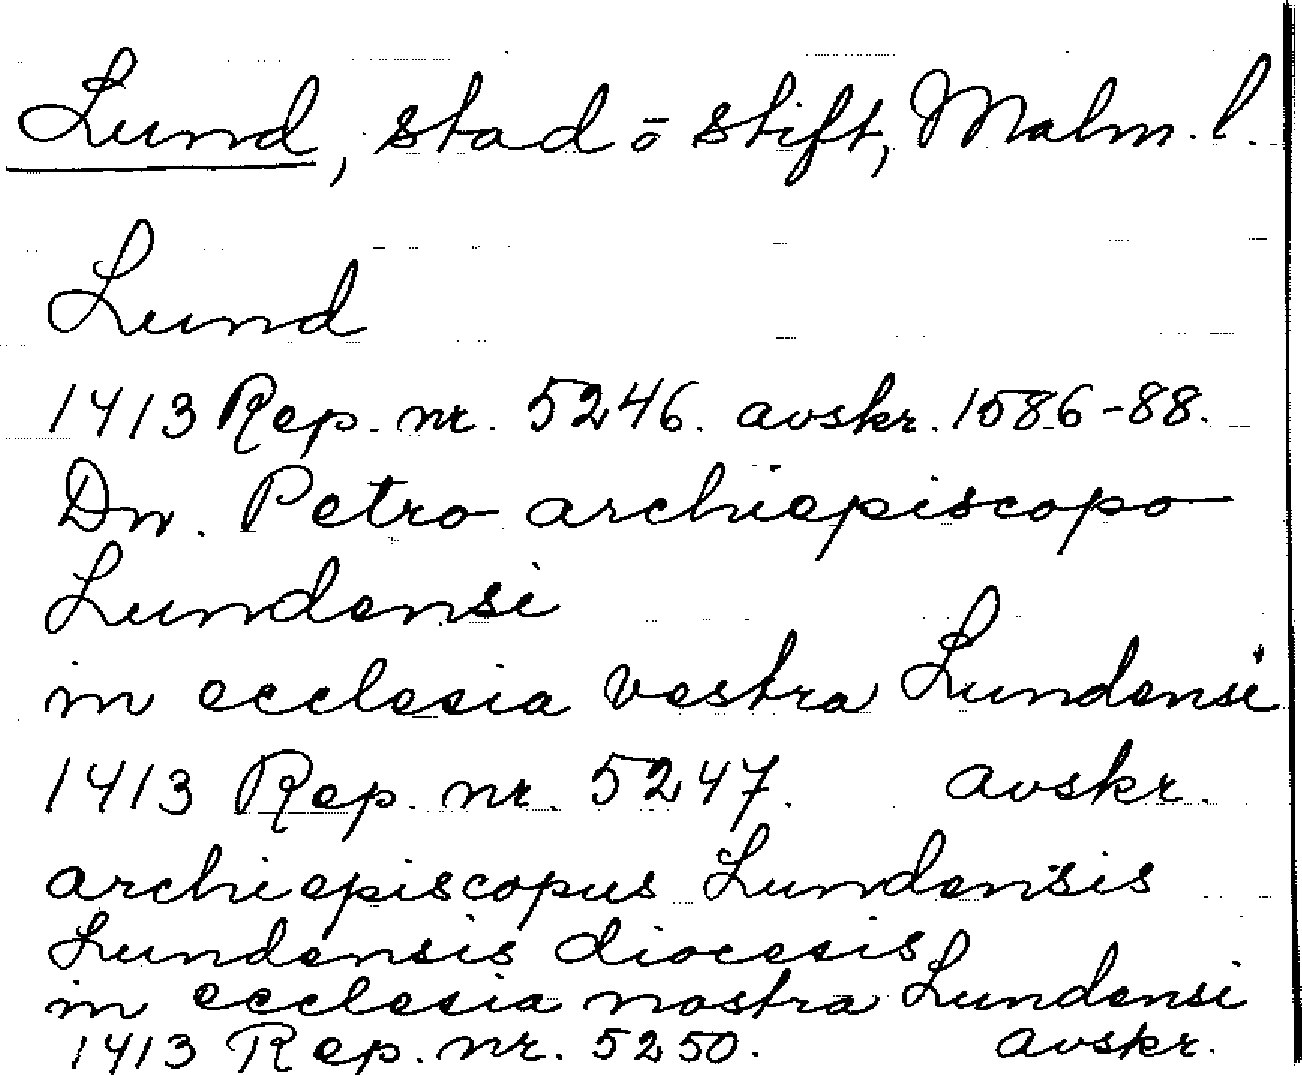 Lund, stad o stift, Malm. l.
Lund
1413 Rep. nr. 5246. avskr. 1586-88.
Dn. Petro archiepiscopo
Lundensi
in ecclesia vestra Lundensi
1413 Rep. nr. 5247. avskr.
archiepiscopus Lundensis
Lundensis diocesis
in ecclesia nostra Lundensi
1413 Rep. nr. 5250. avskr.